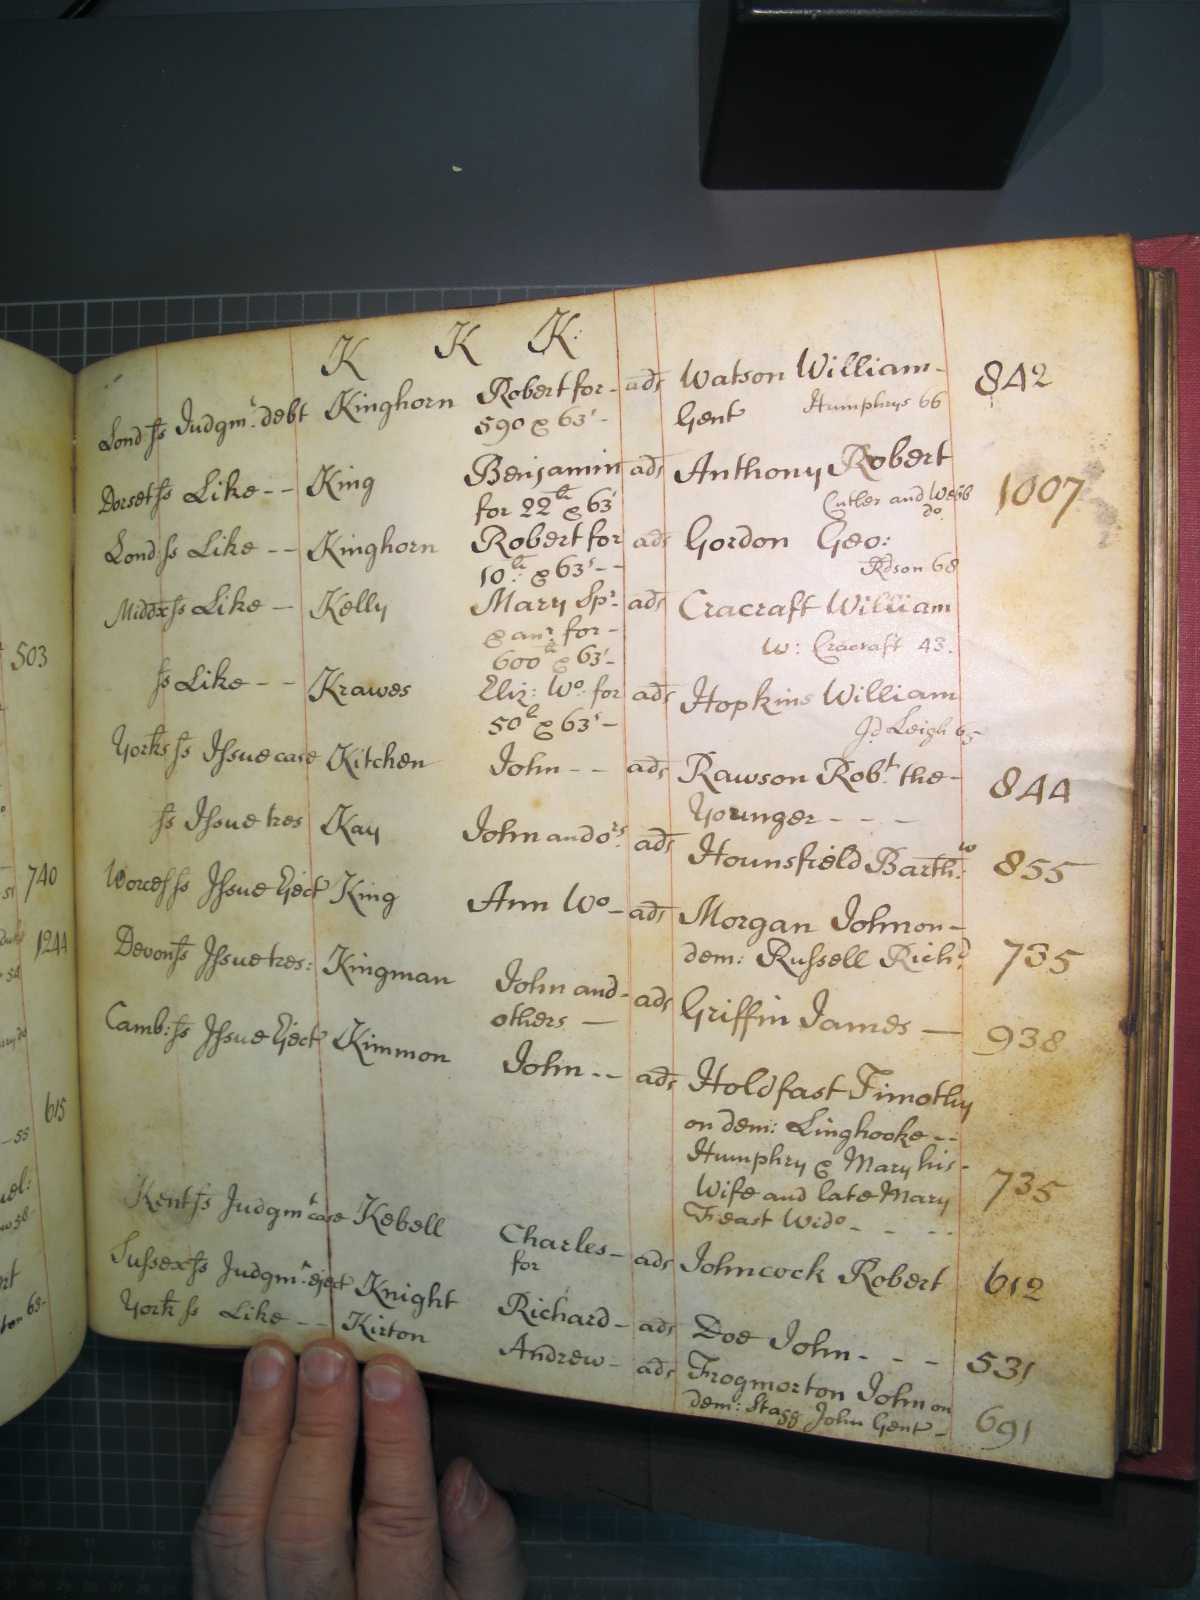 K K K:
Lond ſs Judgmt. debt Kinghorn Robert for - ads Watson William - 842
590 & 63s - Gent Humphrys 66
Dorset ſs Like - - King Benjamin ads Anthony Robert 1007
for 22li & 63s Cutler and Webb
do
Lond ſs Like - - Kinghorn Robert for ads Gordon Geo:
10li: & 63s - - Rdson 68
Middx ſs Like - Kelly Mary Spr. ads Cracraft William
& anr. for - W: Cracraft 43.
600li & 63s -
ſs Like - - Krawes Eliz: Wo: for ads Hopkins William
50l & 63s - Jd Leigh 65
Yorks ſs Iſsue case Kitchen John - - ads Rawson Robt. the - 844
Younger - - -
ſs Iſsue tres Kay John and ors. ads Hounsfield Barthw: 855
Worces ſs Iſsue Eject King Ann Wo - ads Morgan John on - 735
dem: Ruſsell Richd:
Devon ſs Iſsue tres: Kingman John and - ads Griffin James — 938
others —
Camb: ſs Iſsue Eject Kimmon John - - ads Holdfast Timothy
on dem: Linghooke - -
Humphry & Mary his -
Wife and late Mary 735
Feast Wido - - - -
Kent ſs Judgmt case Kebell Charles - ads Johncock Robert 612
for
Suſsex ſs Judgmt. eject Knight Richard - ads Doe John - - - 531
York ſs Like - - Kirton Andrew - ads Frogmorton John on 691
dem: Stagg John Gent -
503
51 740
1244
54
615
55
uel:
58
63